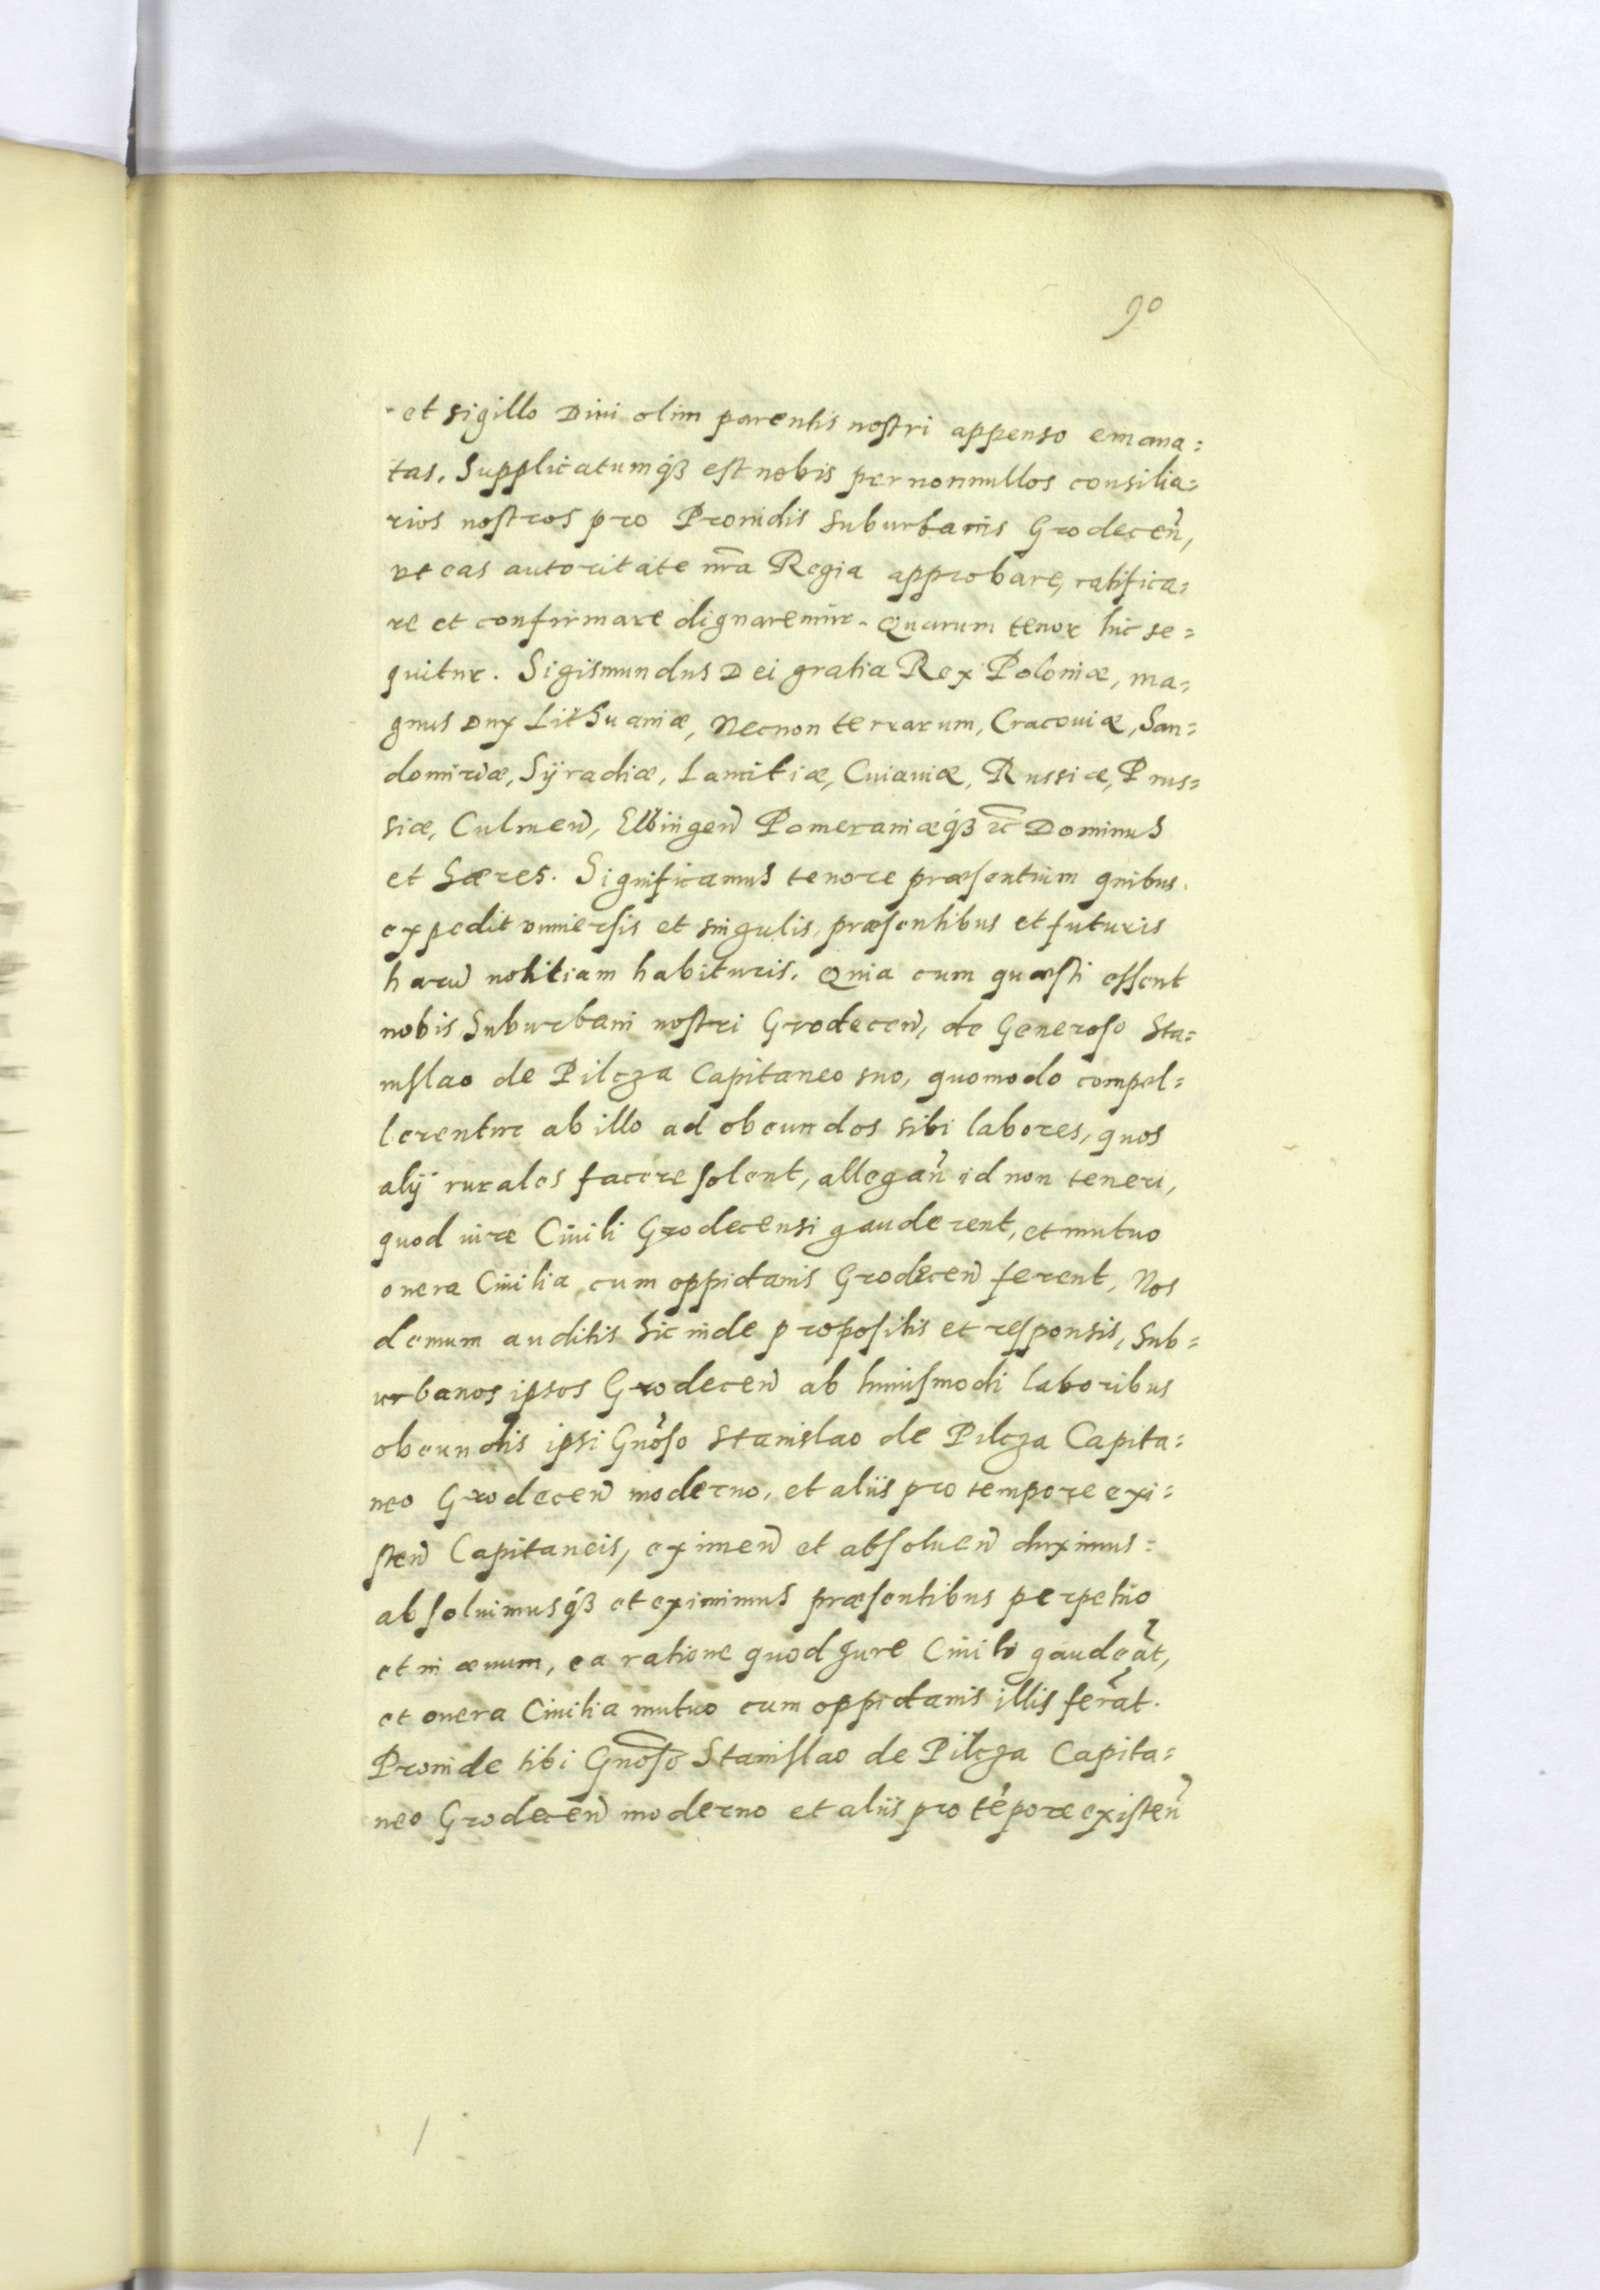 90
et sigillo Diui olim parentis nostri appenso emana=
tas. Supplicatumq₃ est nobis per nonnullos consilia=
rios nostros pro Prouidis Suburbanis Grodecen̄,
vt eas autoritate nr̄a Regia approbare, ratifica=
re et confirmare dignaremur. Quarum tenor hic se=
quitur. Sigismundus Dei gratia Rex Poloniæ, ma=
gnus Dux Lithuaniæ, Necnon terrarum, Cracouiæ, San=
domiriæ, Syradiæ, Lancitiæ, Cuiauiæ, Russiæ, Prus=
siæ, Culmen̄, Elbingen̄ Pomeraniæq₃ rc̄ Dominus
et Hæres. Significamus tenore præsentium quibus
expedit vniuersis et singulis, præsentibus et futuris
harū notitiam habituris. Quia cum quæsti essent
nobis Suburbani nostri Grodecen̄, de Generoso Sta=
nislao de Pilcza Capitaneo suo, quomodo compel=
lerentur ab illo ad obeundos sibi labores, quos
alij rurales facere solent, allegan̄ id non teneri,
quod iure Ciuili Grodecensi gauderent, et mutuo
onera Ciuilia cum oppidanis Grodecen̄ ferent, Nos
demum auditis hic inde propositis et responsis, Sub=
urbanos ipsos Grodecen̄ ab huiusmodi laboribus
obeundis ipsi Gn̄oso Stanislao de Pilcza Capita=
neo Grodecen̄ moderno, et aliis pro tempore exi=
sten̄ Capitaneis, eximen̄ et absoluen̄ duximus=
absoluimusq₃ et eximimus præsentibus perpetuo
et in æuum, ea ratione quod Jure Ciuili gaudeāt,
et onera Ciuilia mutuo cum oppidanis illis ferāt.
Proinde tibi Gn̄oso Stanislao de Pilcza Capita=
neo Grodecen̄ moderno et aliis pro tēpore existen̄